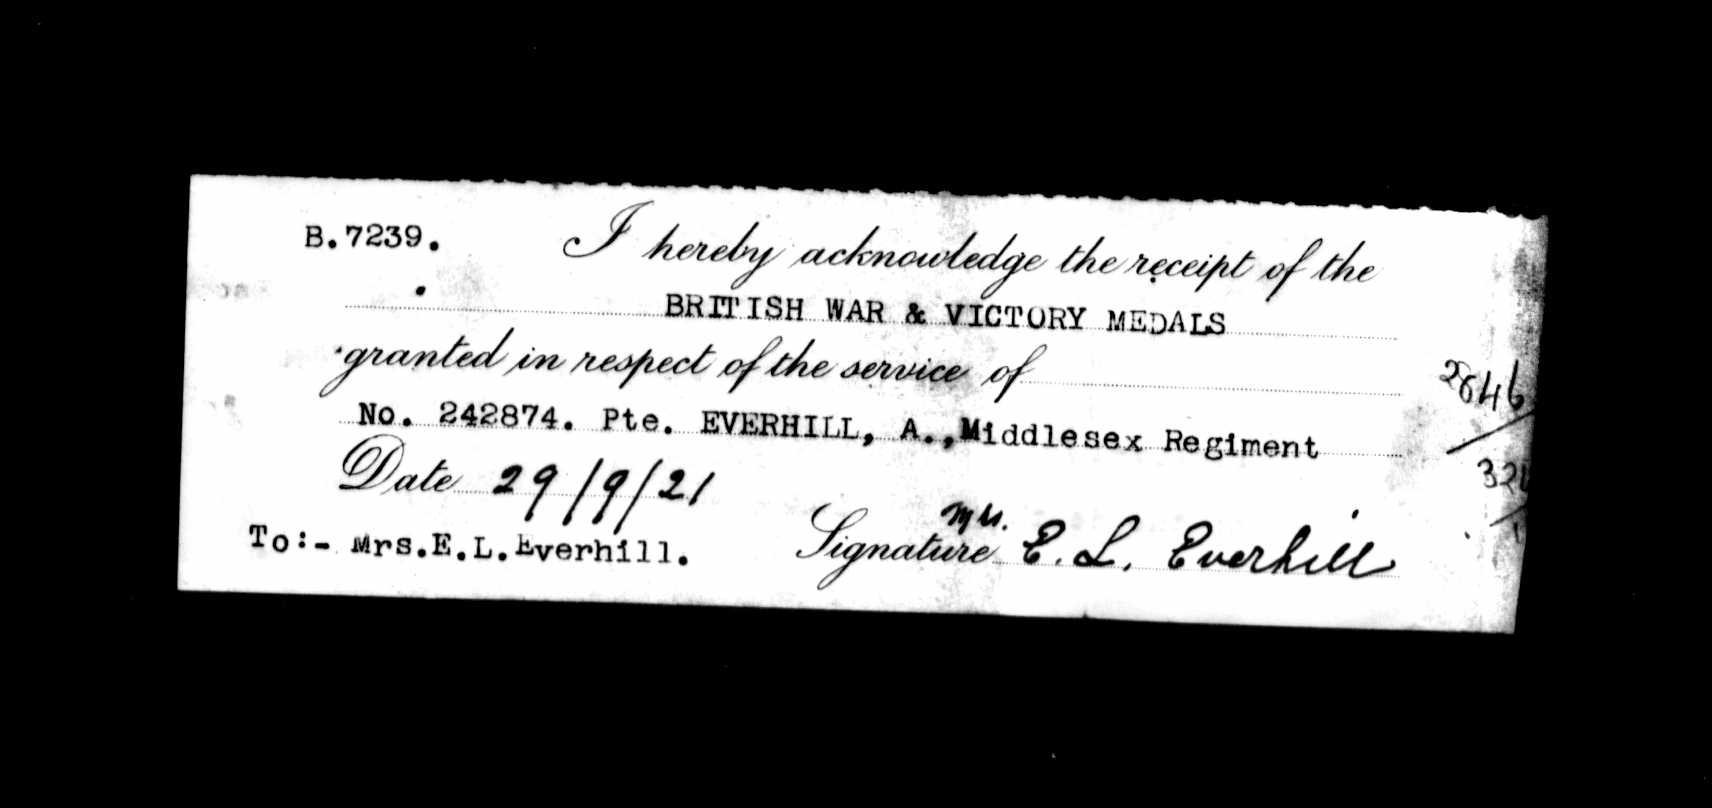 B.7239. I hereby acknowledge the receipt of the
BRITISH WAR & VICTORY MEDALS
granted in respect of the service of
2646
No. 242874. Pte. EVERHILL, A.,Middlesex Regiment
Date 29/9/21
Mrs.
Signature E. L. Everhill
To:- Mrs.E.L.Everhill.